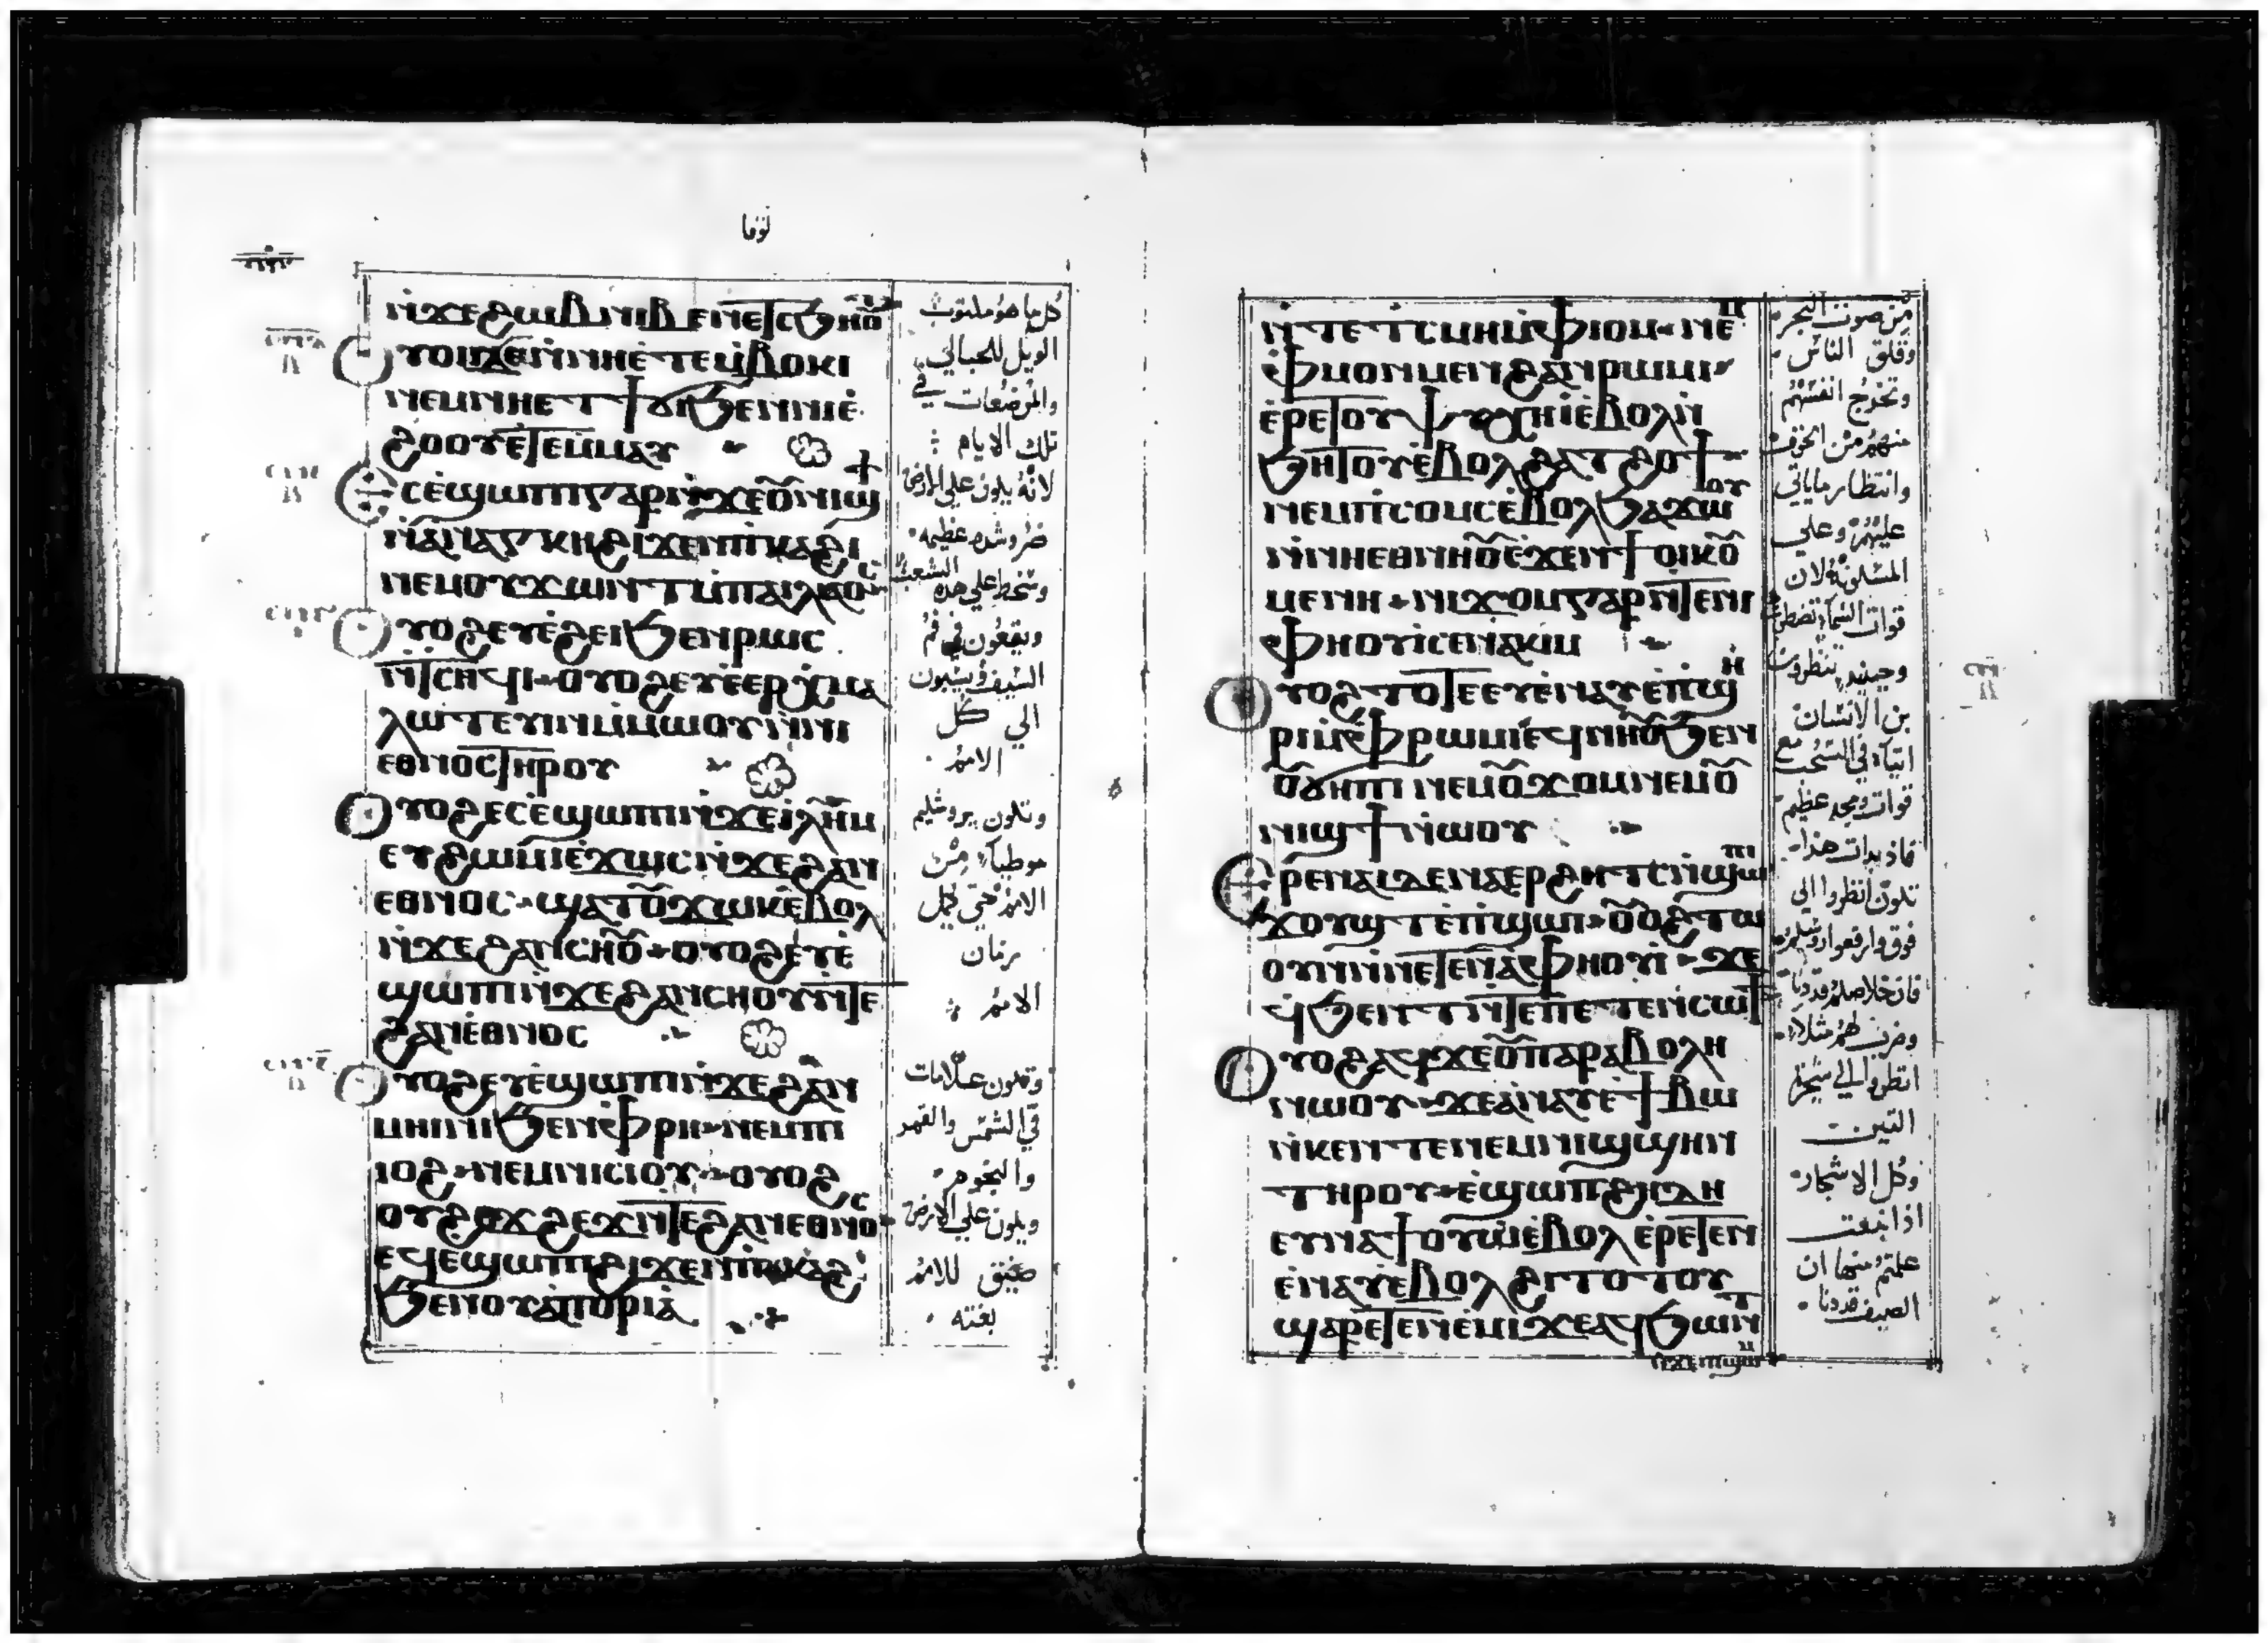 لوقا
ⲛ̀ϫⲉϩⲱⲃⲛⲓⲃⲉⲛⲉⲧⲥϧⲏⲟ̅ⲧ
ⲟⲩⲟⲓⲇⲉⲛ̀ⲛⲏⲉ̀ⲧⲉⲙ̀ⲃⲟⲕⲓ
ⲛⲉⲙⲛⲏⲉⲧϯϭⲓϧⲉⲛⲛⲓⲉ̀
ϩⲟⲟⲩⲉ̀ⲧⲉⲙⲙⲁⲩ
ⲉⲥⲉ̀ϣⲱⲡⲓⲅⲁⲣⲛ̀ϫⲉⲟ̅ⲛⲓϣϯ
ⲛ̀ⲁⲛⲁⲅⲕⲏϩⲓϫⲉⲛⲡⲓⲕⲁϩⲓ
ⲛⲉⲙⲟⲩϫⲱⲛⲧⲙ̀ⲡⲁⲓⲗⲁⲟⲥ
ⲟⲩⲟϩⲉⲩⲉ̀ϩⲉⲓϧⲉⲛⲣⲱⲥ
ⲛ̀ⲧⲥⲏϥⲓ ⲟⲩⲟϩⲉⲩⲉ̀ⲉⲣⲭⲙⲁ
ⲗⲱⲧⲉⲩⲓⲛⲙ̀ⲙⲱⲟⲩⲛ̀ⲛⲓ
ⲉⲑⲛⲟⲥⲧⲏⲣⲟⲩ
ⲟⲩⲟϩⲉⲥⲉ̀ϣⲱⲡⲓⲛ̀ϫⲉⲓ̀ⲗⲏⲙ
ⲉⲩϩⲱⲙⲓⲉ̀ϫⲱⲥⲛ̀ϫⲉϩⲁⲛ
ⲉⲑⲛⲟⲥ ϣⲁⲧⲟ̅ϫⲱⲕⲉ̀ⲃⲟⲗ
ⲛ̀ϫⲉϩⲁⲛⲥⲏⲟ̅ ⲟⲩⲟϩⲉⲩⲉ̀
ϣⲱⲡⲓⲛ̀ϫⲉϩⲁⲛⲥⲏⲟⲩⲛ̀ⲧⲉ
ϩⲁⲛⲉ̀ⲑⲛⲟⲥ
ⲟⲩⲟϩⲉⲩⲉ̀ϣⲱⲡⲓⲛ̀ϫⲉϩⲁⲛ
ⲙⲏⲓⲛⲓϧⲉⲛⲫⲣⲏ ⲛⲉⲙⲡⲓ
ⲓⲟϩ ⲛⲉⲙⲛⲓⲥⲓⲟⲩ ⲟⲩⲟϩ
ⲟⲩϩⲟϫϩⲉϫⲛ̀ⲧⲉϩⲁⲛⲉⲑⲛⲟⲥ
ⲉϥⲉϣⲱⲡⲓϩⲓϫⲉⲛⲡⲓⲕⲁϩⲓ
ϧⲉⲛⲟⲩⲁ̀ⲡⲟⲣⲓⲁ̀
كل ما هو مكتوب
الويل للحبالي
والمرضعات في
تلك الايام
لانه يكون على الارض
ضر وشده عظيمه
وسخط على هذه الشعب
ويقعون في فم
السيف ويسبون
الي كل
الامم
وتكون يروشليم
موطياه من
الامم حتى تكمل
زمان
الامم
وتكون علامات
في الشمس والقمر
والنجوم
ويكون على الارض
ضيق للامم
بغته
ⲛ̀ⲧⲉⲧⲥⲙⲏⲙ̀ⲫⲓⲟⲙ ⲛⲉⲙ
ⲫ̀ⲙⲟⲛⲙⲉⲛϩⲁⲛⲣⲱⲙⲓ
ⲉ̀ⲣⲉⲧⲟⲩⲯⲩⲭⲏⲓ̀ⲉ̀ⲃⲟⲗⲛ̀
ϧⲏⲧⲟⲩⲉ̀ⲃⲟⲗϩⲁⲧϩⲟϯ
ⲛⲉⲙⲡ̀ⲥⲟⲙⲥⲉ̀ⲃⲟⲗϧⲁϫⲱⲟⲩ
ⲛ̀ⲛⲏⲉⲑⲛⲏⲟ̅ⲉ̀ϫⲉⲛϯⲟⲓⲕⲟ̅
ⲙⲉⲛⲏ ⲛⲓϫⲟⲙⲅⲁⲣⲛ̀ⲧⲉⲛⲓ
ⲫⲏⲟⲩⲓ̀ⲥⲉⲛⲁⲕⲓⲙ
ⲟⲩⲟϩⲧⲟⲧⲉⲉⲩⲉ̀ⲛⲁⲩⲉ̀ⲡϣⲏ
ⲣⲓⲙ̀ⲫⲣⲱⲙⲓⲉ̀ϥⲛⲏⲟ̅ϧⲉⲛ
ⲟ̅ϭⲏⲡⲓ ⲛⲉⲙⲟ̅ϫⲟⲙⲛⲉⲙⲟ̅
ⲛⲓϣϯⲛ̀ⲱⲟⲩ
ⲉⲣⲉⲛⲁⲓⲇⲉⲛⲁⲉⲣϩⲏⲧⲥⲛ̀ϣⲱⲡⲓ
ϫⲟⲩϣⲧⲉ̀ⲡ̀ϣⲱⲓ ⲟ̅ⲟϩϥⲧⲱ
ⲟⲩⲛⲛ̀ⲛⲉⲧⲉⲛⲁ̀ⲫⲏⲟⲩⲓ̀ ϫⲉ
ϥ̀ϧⲉⲛⲧⲛ̀ⲧⲉⲡⲉⲧⲉⲛⲥⲱϯ
ⲟⲩⲟϩⲁϥϫⲉⲟ̅ⲡⲁⲣⲁⲃⲟⲗⲏ
ⲛⲱⲟⲩ ϫⲉⲁ̀ⲛⲁⲩⲉ̀ϯⲃⲱ
ⲛ̀ⲕⲉⲛⲧⲉⲛⲉⲙⲛⲓϣϣⲏⲛ
ⲧⲏⲣⲟⲩ ⲉ̀ϣⲱⲡϩⲏⲇⲏ
ⲉⲩⲛⲁϯⲟⲩⲱⲉ̀ⲃⲟⲗ ⲉ̀ⲣⲉⲧⲉⲛ
ⲉ̀ⲛⲁⲩⲉ̀ⲃⲟⲗϩⲓⲧⲟⲧⲟⲩ
ϣⲁⲣⲉⲧⲉⲛⲉ̀ⲙⲓϫⲉⲁϥϧⲱⲛⲧ
ⲛ̀ϫⲉⲡϣⲱⲙ
من صوت البحر
وقلق الناس
وتخرج انفسهم
منهم من الخوف
وانتظار ماياتي
عليهم وعلى
المسكونه لان
قوات السماء تضطرب
وحينيذ ينظرون
بن الانسان
اتياً في السحب مع
قوات ومجد عظيم
فاذ بدات هذا
تكون انظروا الى
فوق وارفعوا روسكم
فان خلاصكم قد دنا
وضرب لهم مثلا
انظروا الى شجرة
التين
وكل الاشجار
اذا اينعت
علمتم منها ان
الصيف قد دنا